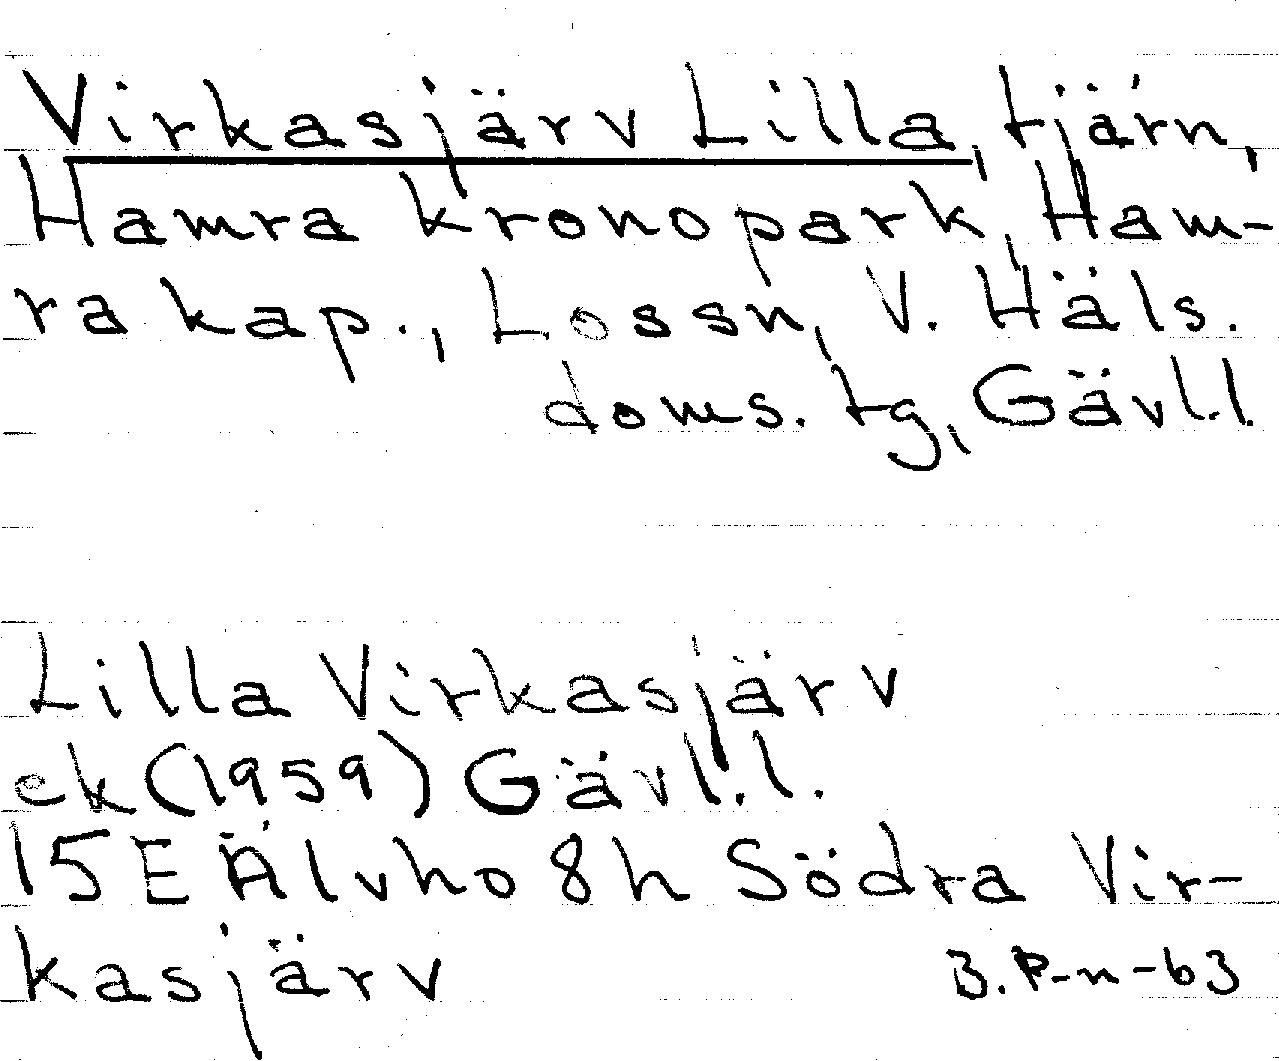 Virkasjärv Lilla, tjärn,
Hamra kronopark, Ham-
ra kap., Lossn, V. Häls.
doms. tg, Gävl.l.
Lilla Virkasjärv
ek (1959) Gävl.l.
15E Älvho 8h Södra Vir-
kasjärv
B.P-n-63